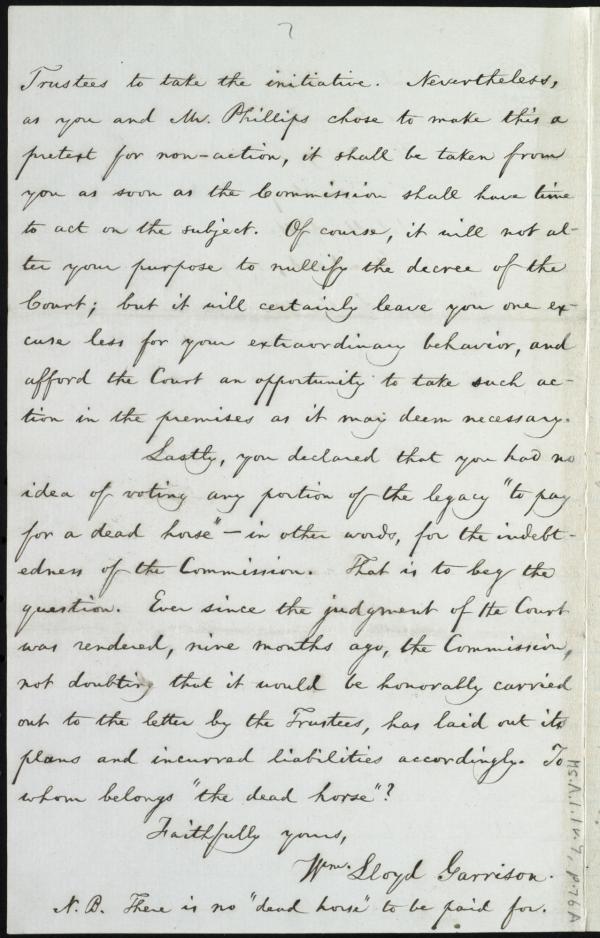 7
Trustees to take the initiative. Nevertheless,
as you and Mr. Phillips chose to make this a
pretext for non-action, it shall be taken from
you as soon as the Commission shall have time
to act on the subject. Of course, it will not al-
ter your purpose to nullify the decree of the
Court; but it will certainly leave you one ex-
cuse less for your extraordinary behavior, and
afford the Court an opportunity to take such ac-
tion in the premises as it may deem necessary.
Lastly, you declared that you had no
idea of voting any portion of the legacy "to pay
for a dead horse" – in other words, for the indebt-
edness of the Commission. That is to beg the
question. Ever since the judgment of the Court
was rendered, nine months ago, the Commission,
not doubting that it would be honorably carried
out to the letter by the Trustees, has laid out its
plans and incurred liabilities accordingly. To
whom belongs "the dead horse"?
Faithfully yours,
Wm. Lloyd Garrison.
N. B. There is no "dead horse" to be paid for.
Ms.A.1.1 v.7, p.76A